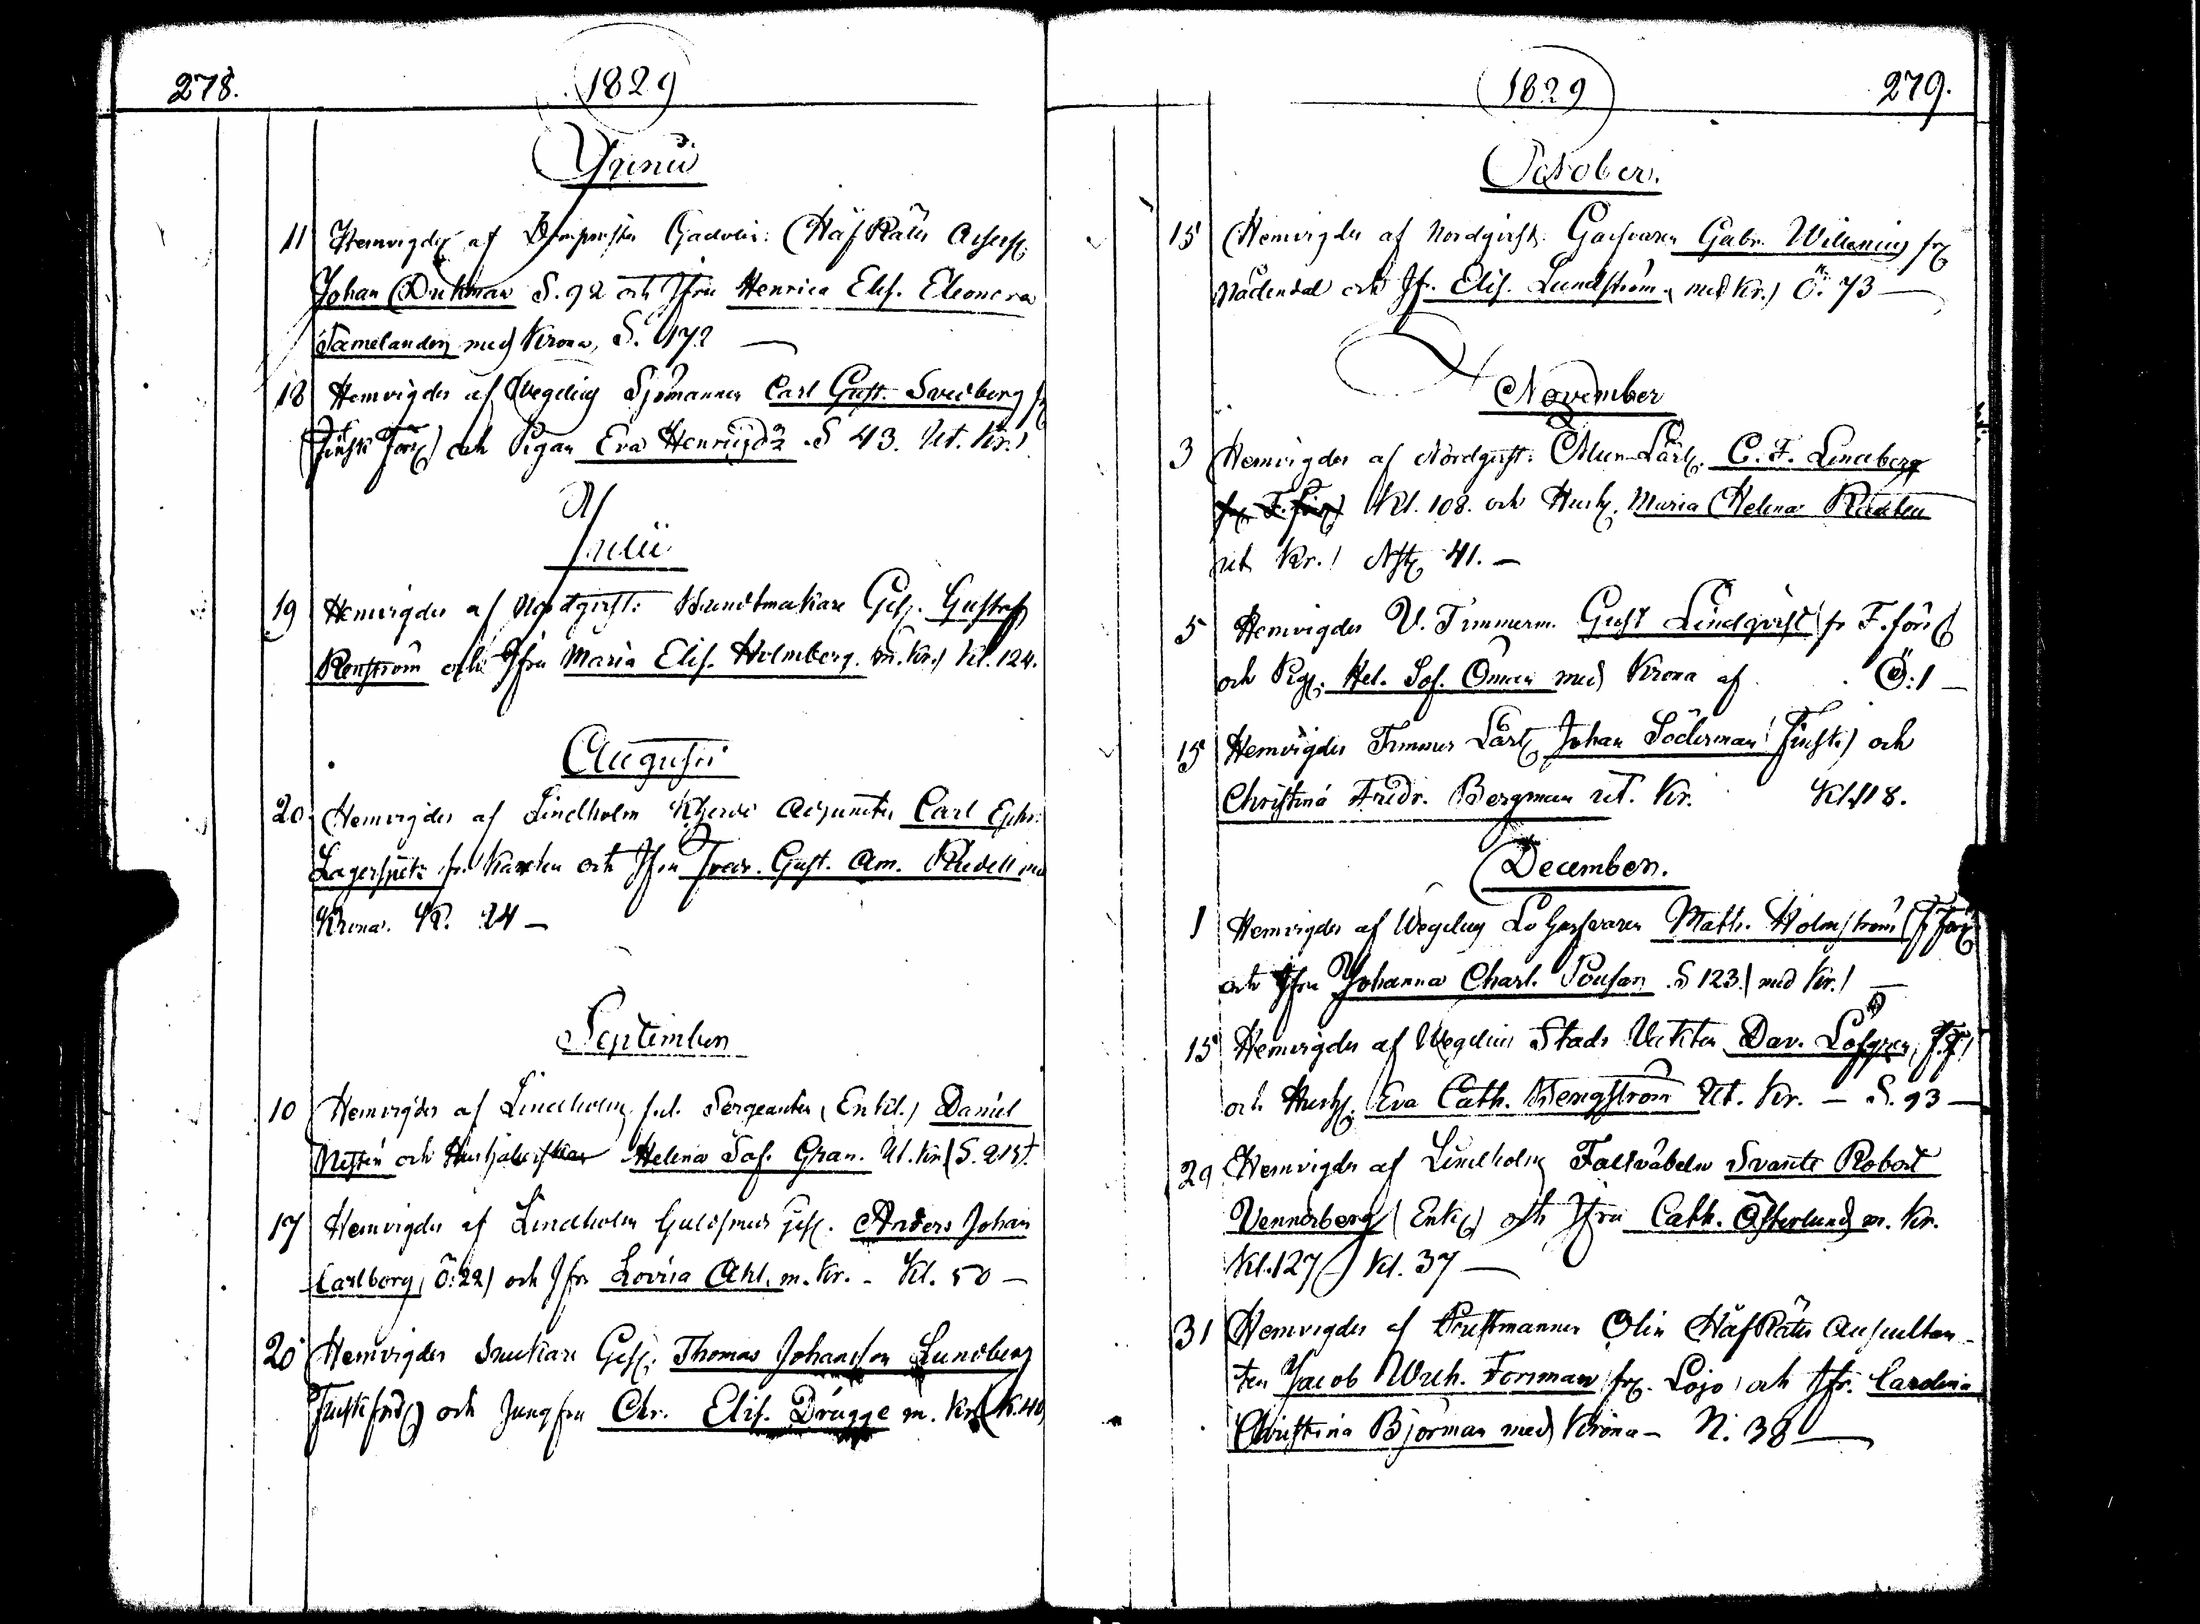 278.
1829
Junii
11 Hemvigdes af Domprosten Gadolin: HåfRätts Assess.
Johan Dickman S. 92 och Jfru Henrica Elis. Eleonora
Tamelander med Krona, S. 172
18 Hemvigdes af Wegelius Sjömannen Carl Gust. Svedberg
Finsk förs och Pigan Eva Henriksd:r S 43. Ut. Kr.
Julii
19 Hemvigdes af Nordqvist: Buntmakare Ges. Gustaf
Renström och Jfru Maria Elis. Holmberg. m. Kr. Kl. 124.
Augusti
20 Hemvigdes af Lindholm Adjuncten Carl Ephr.
Lagerspetz fr. och Jfru Fredr. Gust. Am. Ridell
Krona. Kl. 24 —
September
10 Hemvigdes af Lindholm Sergeanten (Enkl.) Daniel
och Helena Sof. Gran. Ut. Kr. S. 215.
17 Hemvigdes af Lindholm Guldsmeds Ges. Anders Johan
Carlborg, Ö: 22) och Jfr Lovisa Ahl. m. Kr. - Kl. 50 —
20 Hemvigdes Snickare Ges. Thomas Johansson Lundberg
Finsk förs och Jungfru Chr. Elis. Drugge m. Kr. K. 40
1829
279.
October.
15 Hemvigdes af Nordqvist. Garfvaren Gabr. Willenius fr
Nådendal och Jf. Elis. Lundström, med Kr.) Ö. 73 —
November
3 Hemvigdes af Nordqvist: Mur-Lärl. C. F. Lindberg
Kl. 108. och Hush. Maria Helena
ut Kr.! 41. —
5 Hemvigdes U. Timmerm. Gust Lindqvist fr F. förs
och Pig. Hel. Sof. Öman med Krona af Ö: 1 —
15 Hemvigdes Timmer Lärl Johan Söderman Finsk) och
Christina Fredr. Bergman ut. Kr. Kl. 118.
December.
1 Hemvigdes af Wegelius Garfvaren Math. Holmström (F. förs
och Jfru Johanna Charl. Pousar. S 123. med Kr.!
15 Hemvigdes af Wegelius Stads Dav. Löfgren, F.f.
och Hush. Eva Cath. Wengström Ut. Kr. — S. 93 —
29 Hemvigdes af Lindholm Faltväbeln Svante Robert
Vennerberg (Enkl) och Jfru Cath. Österlund m. Kr.
Kl. 127 Kl. 37 —
31 Hemvigdes af Prostmannen Olin HåfRätts Auscultan-
ten Jacob Wilh. Forsman fr. Lojo och Jfr. Carolina
Christina Björman med Krona - N. 38 —